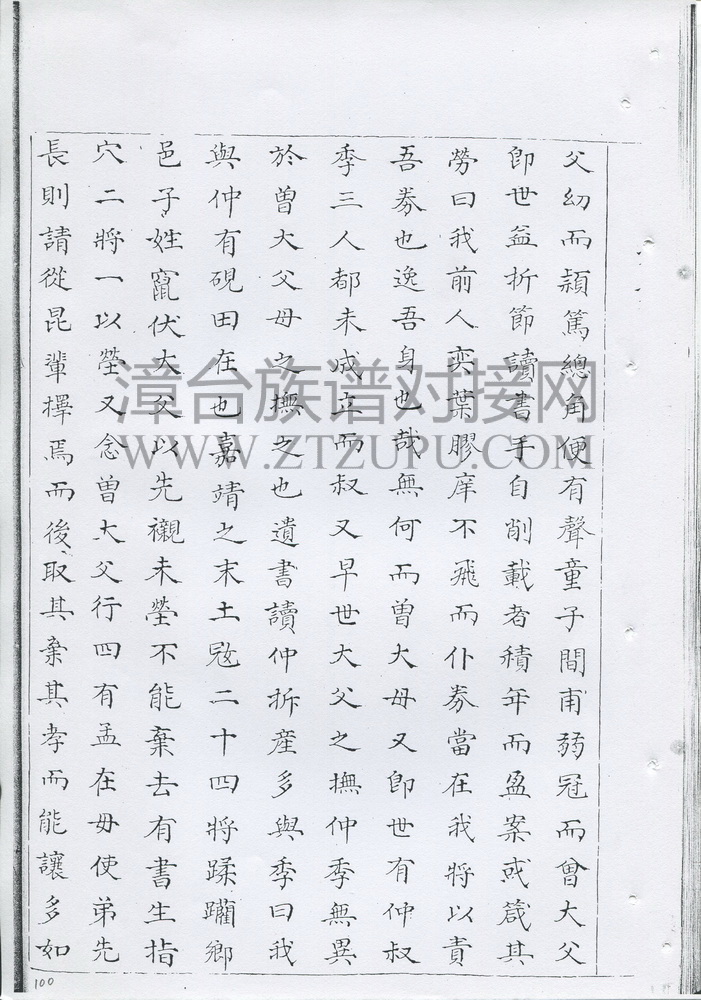 父幼而穎篤總角便有聲童子間甫弱冠而曾大父
即世益折節讀書手自削載者積年而盈案或箴其
勞曰我前人奕葉膠庠不飛而仆券當在我將以責
吾券也逸吾身也哉無何而曾大母又即世有仲叔
季三人都未成立而叔又早世大父之撫仲季無異
於曾大父母之撫之也遺書讀仲拆産多與季曰我
與仲有硯田在也嘉靖之末土寇二十四將蹂躪鄉
邑子姓竄伏大父以先襯未塋不能棄去有書生指
穴二將一以塋又念曾大父行四有孟在毋使弟先
長則請從昆輩擇焉而後取其棄其孝而能讓多如
漳台族谱对接网
WWW.ZTZUPU.COM
100